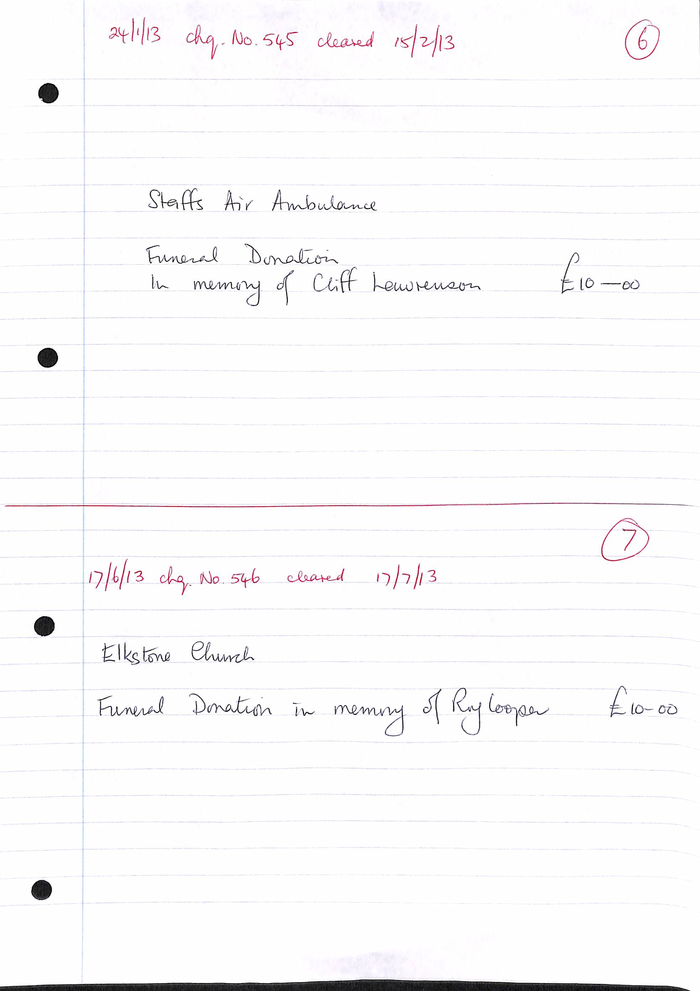 24/1/13 chq. No. 545 cleared 15/2/13
6
Staffs Air Ambulance
Funeral Donation
In memory of Cliff Lawrenson £10-00
7
17/6/13 chq. No. 546 cleared 17/7/13
Elkstone Church
Funeral Donation in memory of Roy Cooper £10-00